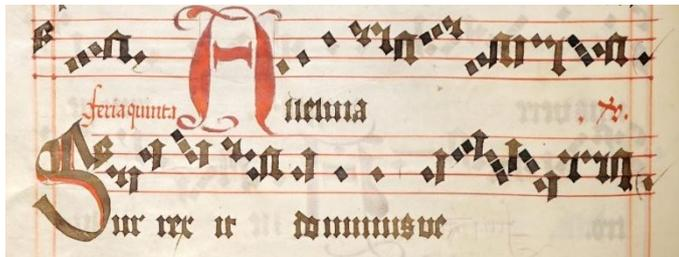 feria quinta Alleluia
Sur rex it dominus ve